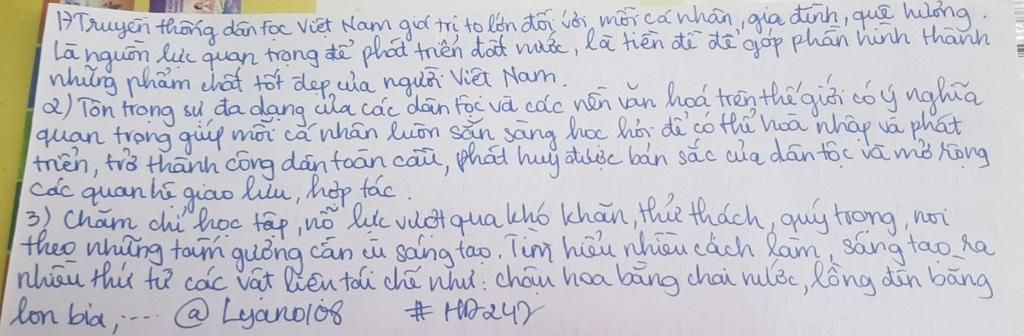 1) Truyền thống dân tộc Việt Nam giá trị to lớn đối với mỗi cá nhân, gia đình, quê hương.
Là nguồn lực quan trọng để phát triển đất nước, là tiền đề để góp phần hình thành
những phẩm chất tốt đẹp của người Việt Nam.
2) Tôn trọng sự đa dạng của các dân tộc và các nền văn hoá trên thế giới có ý nghĩa
quan trọng giúp mỗi cá nhân luôn sẵn sàng học hỏi để có thể hoà nhập và phát
triển, trở thành công dân toàn cầu, phát huy được bản sắc của dân tộc và mở rộng
các quan hệ giao lưu, hợp tác.
3) Chăm chỉ học tập, nỗ lực vượt qua khó khăn, thử thách, quý trọng, noi
theo những tấm gương cần cù sáng tạo. Tìm hiểu nhiều cách làm, sáng tạo ra
nhiều thứ từ các vật liệu tái chế như: chậu hoa bằng chai nước, lồng đèn bằng
lon bia,.... @ Lyano108 # HD247